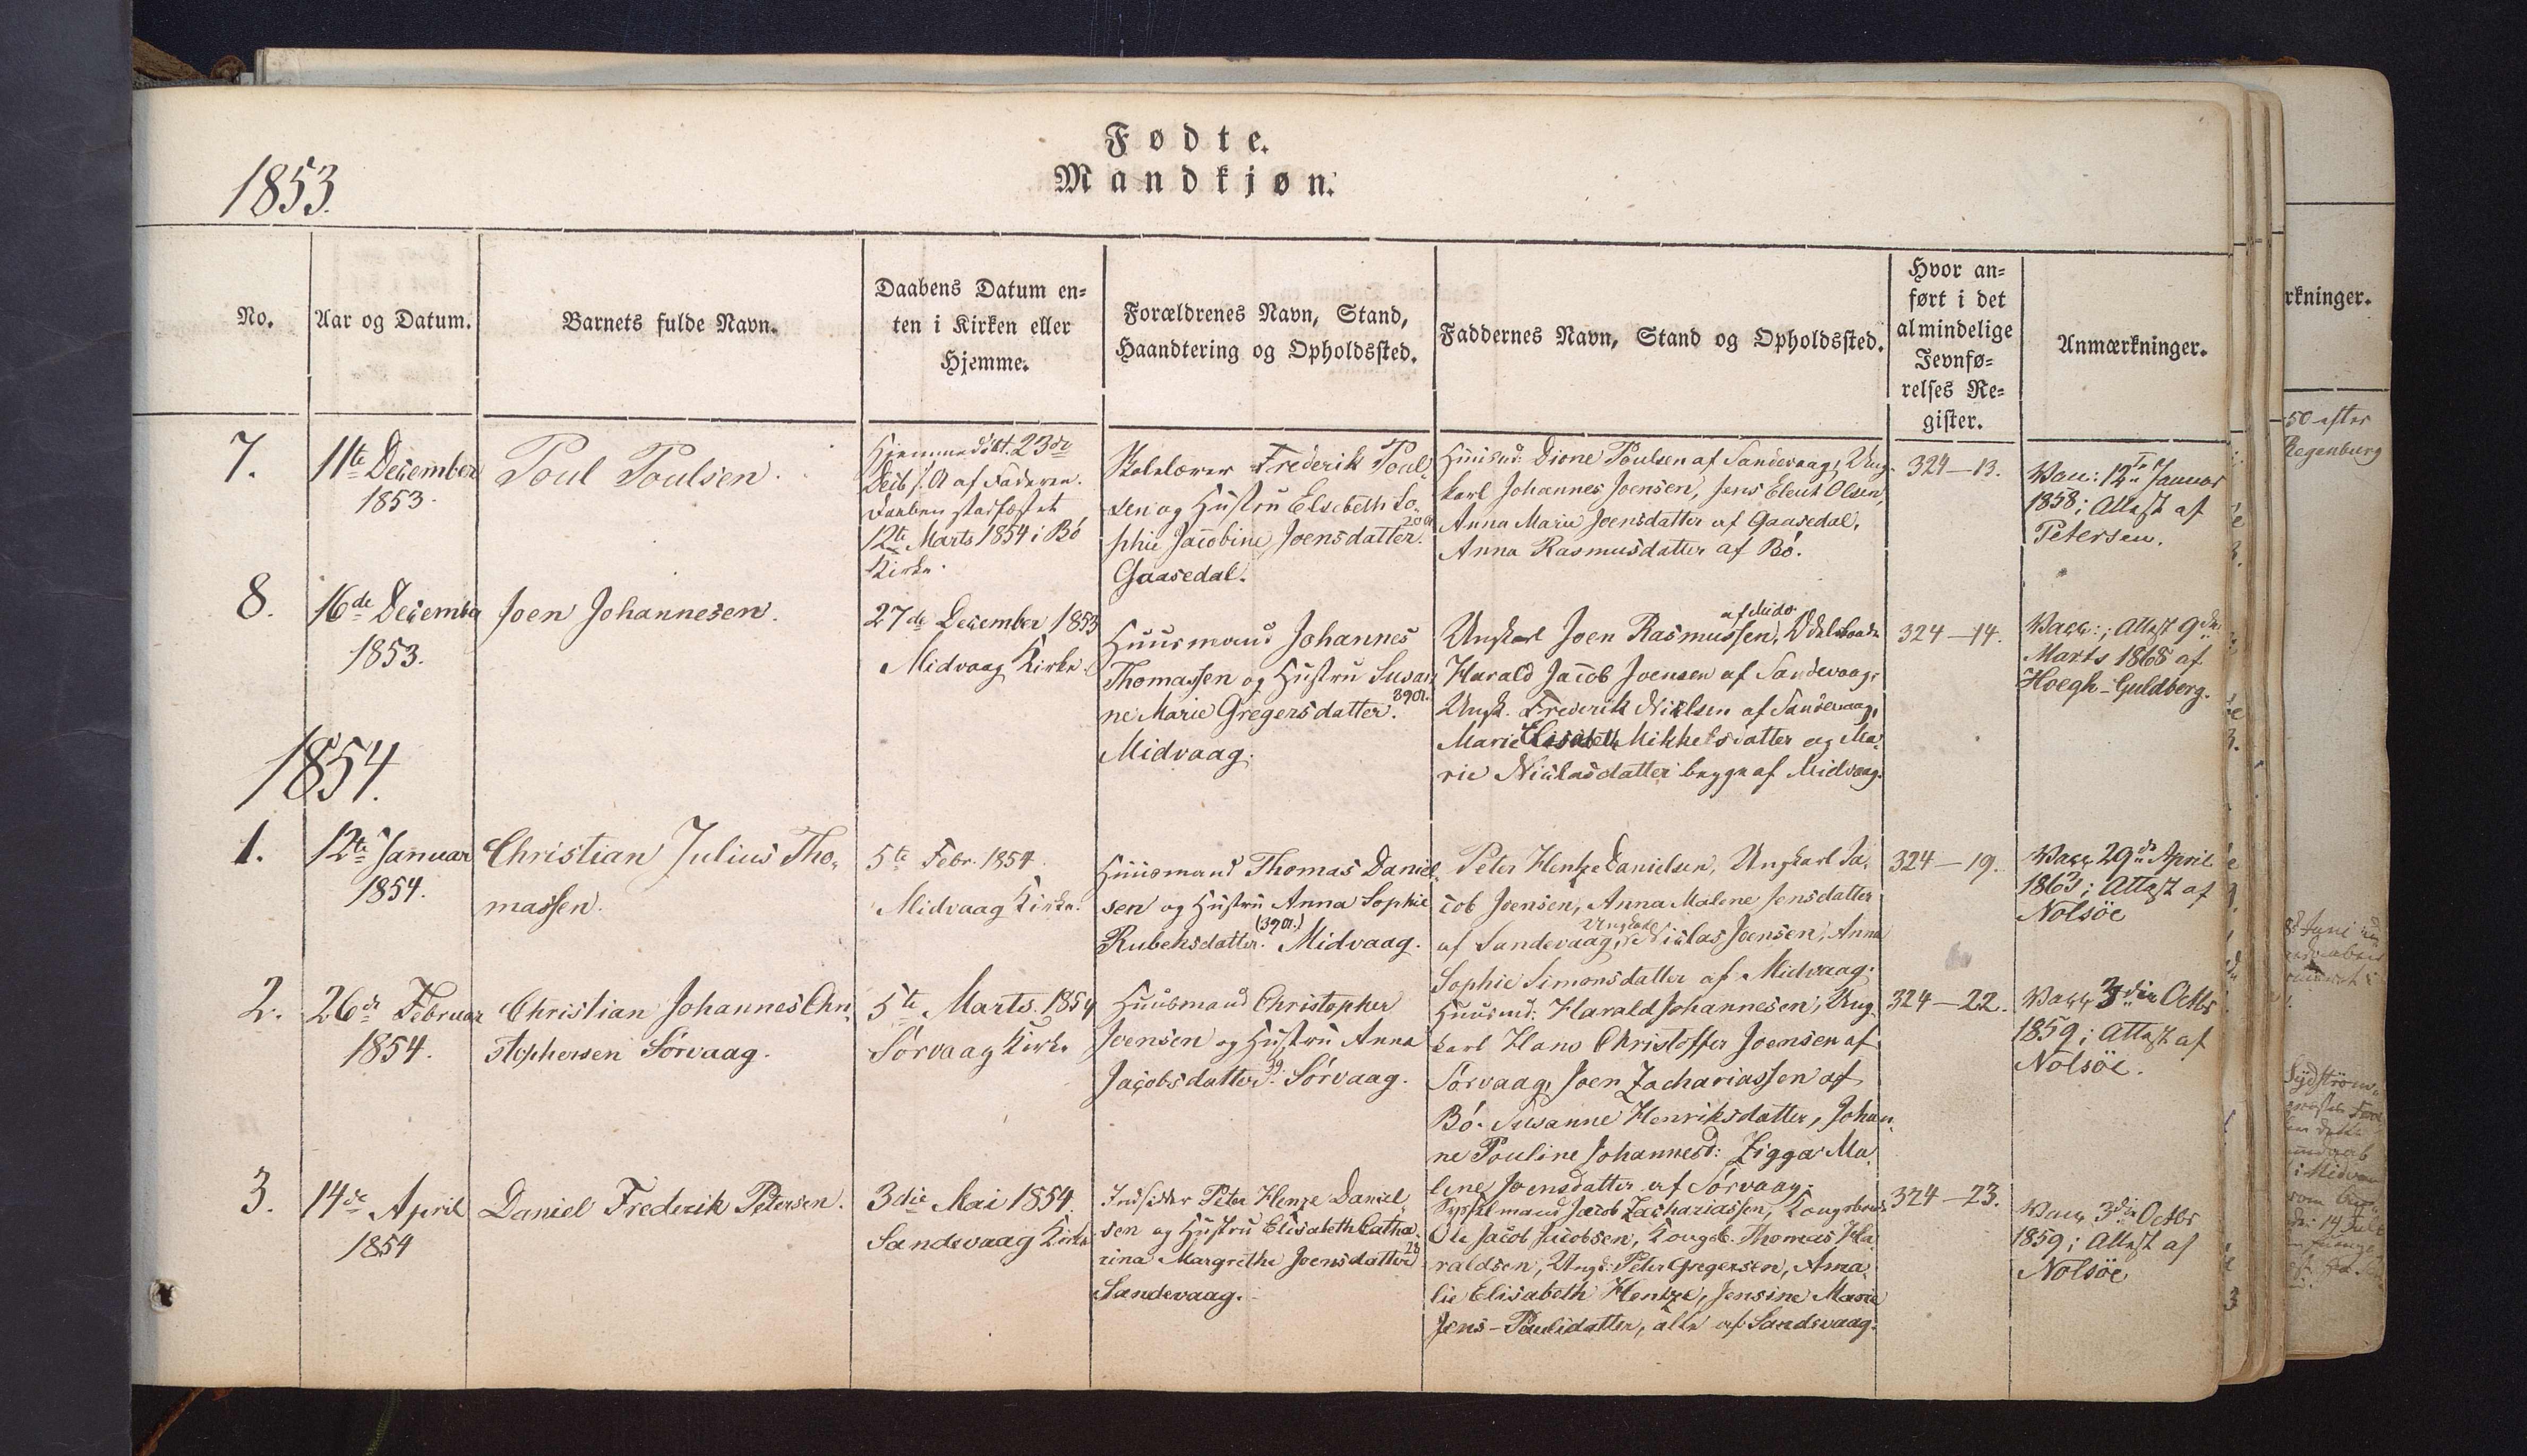 Fødte.
Mandkjøn.
1853.
No.
Aar og Datum.
Barnets fulde Navn.
Daabens Datum en-
ten i Kirken eller
Hjemme.
Forældrenes Navn, Stand,
Haandtering og Opholdssted.
Faddernes Navn, Stand og Opholdssted.
Hvor an-
ført i det
almindelige
Jevnfø-
relses Re-
gister.
Anmærkninger.
7.
11te December
1853.
Poul Poulsen.
Hjemmedøbt 23de
Decb s. A af Faderen.
Daaben stadfæstet
12te Marts 1854 i Bø
Kirke.
Skolelærer Frederik Poul-
sen og Hustru Elsebeth So-
phie Jacobine Joensdatter.
Gaasedal.
Huusmd: Dione Poulsen af Sandevaag, Ung-
karl Johannes Joensen, Jens Elent Olsen,
Anna Marie Joensdatter af Gaasedal,
Anna Rasmusdatter af Bø.
324-13.
Vacc: 12te Januar
1858; Attest af
Petersen.
8.
16de December
1853.
Joen Johannesen.
27de December 1853
Midvaag Kirke
Huusmand Johannes
Thomassen og Hustru Susan-
ne Marie Gregersdatter. 39 A.
Midvaag.
Ungkarl Joen Rasmussen af Midv.
Harald Jacob Joensen af Sandevaag,
Ungk. Frederik Nielsen af Sandevaag,
Marie Elisabeth Mikkelsdatter og Ma-
rie Niclasdatter begge af Midvaag.
324-14.
Vacc:; Attest 9de
Marts 1868 af
Høegh-Guldberg.
1854.
1.
12te Januar
1854.
Christian Julius Tho-
massen.
5te Febr. 1854.
Midvaag Kirke.
Huusmand Thomas Daniel-
sen og Hustru Anna Sophie
Rubeksdatter. (39 A.) Midvaag.
Peter Hentze Danielsen, Ungkarl Ja-
cob Joensen, Anna Malene Jensdatter
af Sandevaag, Ungkarl Niclas Joensen, Anna
Sophie Simonsdatter af Midvaag.
324-19.
Vacc 29de April
1863; Attest af
Nolsöe
2.
26de Februar
1854.
Christian Johannes Chri-
stophersen Sørvaag.
5te Marts. 1854
Sørvaag Kirke
Huusmand Christopher
Joensen og Hustru Anna
Jacobsdatter 39. Sørvaag.
Huusmd: Harald Johannesen, Ung-
karl Hans Christoffer Joensen af
Sørvaag, Joen Zachariassen af
Bø. Susanne Henriksdatter, Johan-
ne Pouline Johannesd: Zigga Ma-
lene Joensdatter af Sørvaag.
324-22.
Vacc 3die Octbr
1859; Attest af
Nolsöe.
3.
14de April
1854
Daniel Frederik Petersen.
3die Mai 1854.
Sandevaag Kirke
Indsidder Peter Henze Daniel-
sen og Hustru Elisabeth Catha-
rina Margrethe Joensdatter 28
Sandevaag.
Sysselmand Jacob Zachariassen, Kongsbonde
Ole Jacob Jacobsen, Kongsb. Thomas Ha-
raldsen, Ungk: Peter Gregersen, Ama-
lie Elisabeth Hentze, Jensine Marie
Jens-Poulsdatter, alle af Sandevaag.
324-23.
Vacc 3die Octbr
1859; Attest af
Nolsöe
rkninger.
50 efter
Regenburg